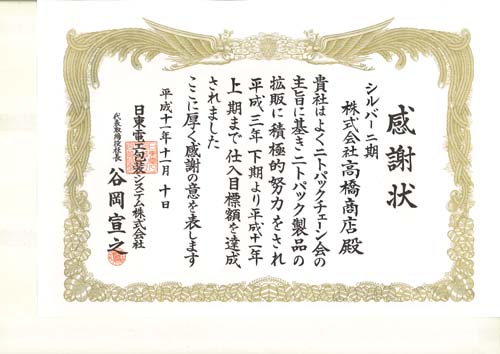 感謝状
シルバー二期
株式会社高橋商店殿
貴社はよくニトパックチェーン会の
主旨に基きニトパック製品の
拡販に積極的努力をされ
平成三年下期より平成十一年
上期まで仕入目標額を達成
されました
ここに厚く感謝の意を表します
平成十一年十一月十日
日東電工包装システム株式会社
代表取締役社長 谷岡宣之